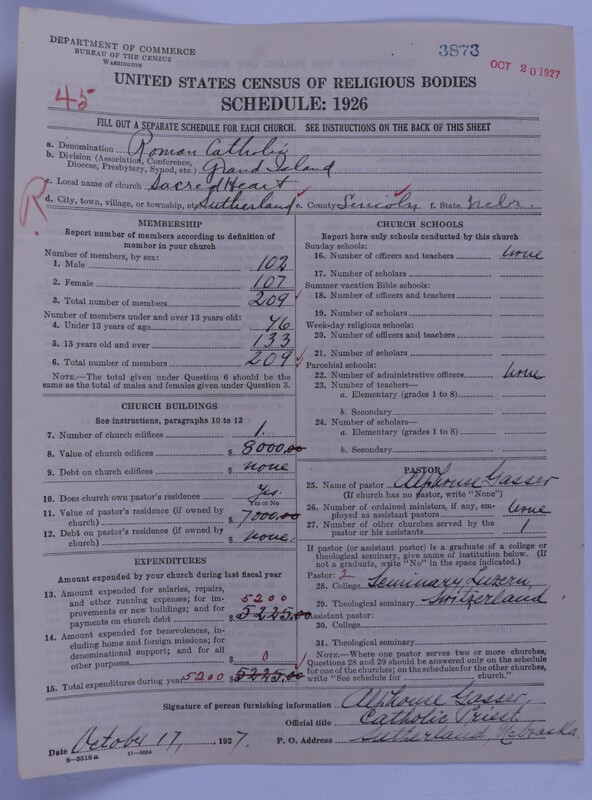 DEPARTMENT OF COMMERCE
BUREAU OF THE CENSUS
WASHINGTON
3873
OCT 20 1927
UNITED STATES CENSUS OF RELIGIOUS BODIES
SCHEDULE: 1926
45
FILL OUT A SEPARATE SCHEDULE FOR EACH CHURCH. SEE INSTRUCTIONS ON THE BACK OF THIS SHEET
a. Denomination Roman Catholic
b. Division (Association, Conference, Diocese, Presbytery, Synod, etc.) Grand Island
c. Local name of church Sacred Heart
R.
d. City, town, village, or township, etc. Sutherland e. County Lincoln f. State Nebr.
MEMBERSHIP
Report number of members according to definition of
member in your church
Number of members, by sex:
1. Male 102
2. Female 107
3. Total number of members 209
Number of members under and over 13 years old:
4. Under 13 years of age 76
5. 13 years old and over 133
6. Total number of members 209
NOTE.—The total given under Question 6 should be the
same as the total of males and females given under Question 3.
CHURCH BUILDINGS
See instructions, paragraphs 10 to 12
7. Number of church edifices 1.
8. Value of church edifices $ 8000.00
9. Debt on church edifices $ none
10. Does church own pastor's residence Yes.
Yes or No
11. Value of pastor's residence (if owned by
church) $ 7000.00
12. Debt on pastor's residence (if owned by
church) $ none.
EXPENDITURES
Amount expended by your church during last fiscal year
13. Amount expended for salaries, repairs,
and other running expenses; for im-
provements or new buildings; and for
payments on church debt 5200 $ 5225.00
14. Amount expended for benevolences, in-
cluding home and foreign missions; for
denominational support; and for all
other purposes $ 0
15. Total expenditures during year 5200 $ 5225.00
CHURCH SCHOOLS
Report here only schools conducted by this church
Sunday schools:
16. Number of officers and teachers none
17. Number of scholars
Summer vacation Bible schools:
18. Number of officers and teachers
19. Number of scholars
Week-day religious schools:
20. Number of officers and teachers
21. Number of scholars
Parochial schools:
22. Number of administrative officers none
23. Number of teachers—
a. Elementary (grades 1 to 8)
b. Secondary
24. Number of scholars—
a. Elementary (grades 1 to 8)
b. Secondary
PASTOR
25. Name of pastor Alphonse Gasser
(If church has no pastor, write "None")
26. Number of ordained ministers, if any, em-
ployed as assistant pastors none
27. Number of other churches served by the
pastor or his assistants 1
If pastor (or assistant pastor) is a graduate of a college or
theological seminary, give name of institution below. (If
not a graduate, write "No" in the space indicated.)
Pastor: 2
28. College Seminary Luzern,
29. Theological seminary Switzerland
Assistant pastor:
30. College
31. Theological seminary
NOTE.—Where one pastor serves two or more churches,
Questions 28 and 29 should be answered only on the schedule
for one of the churches; on the schedules for the other churches,
write "See schedule for church."
Signature of person furnishing information Alphonse Gasser
Official title Catholic Priest
Date October 17, , 1927. P. O. Address Sutherland, Nebraska.
8-5518a